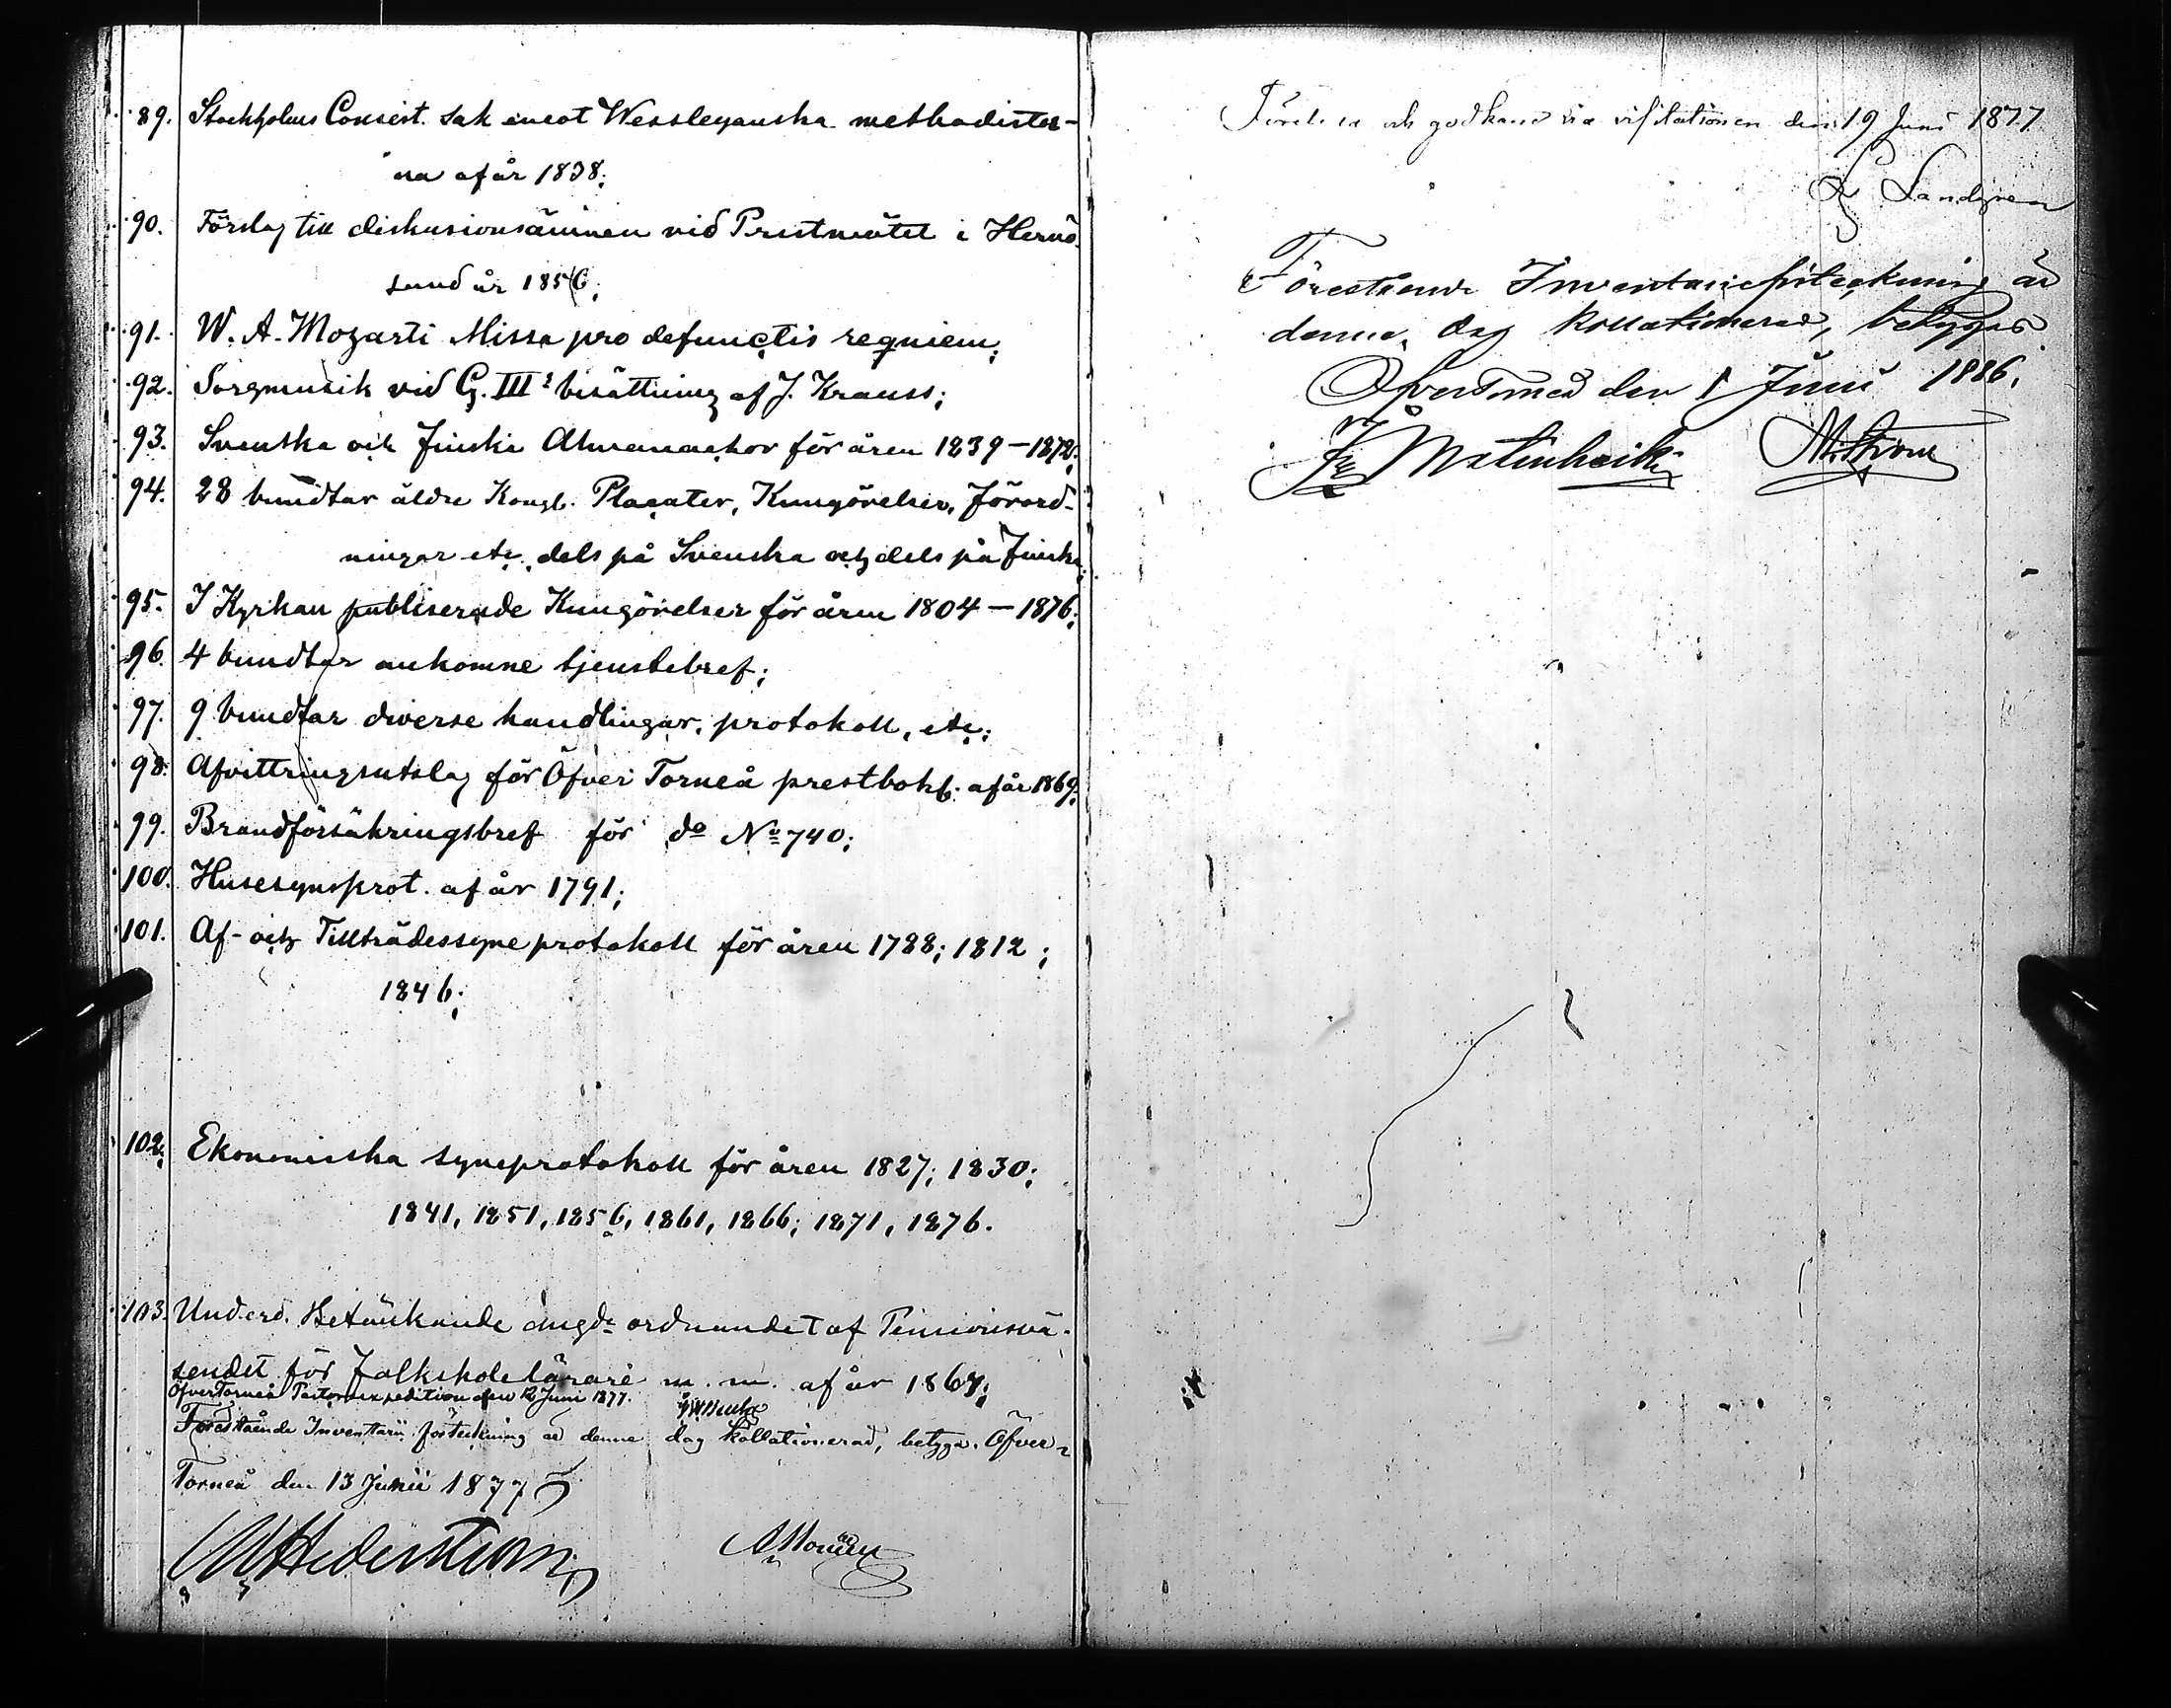 89. Stockholms Consist. sak emot Wessleyanska methodister-
na af år 1838;
90. Förslag till diskusionsämnen vid Prestmötet i Hernö
sand år 1856;
91. W. A. Mozarti Missa pro defunctis requiem;
92. Sorgmusik vid G. III:s bisättning af J. Krauss;
93. Svenska och Finska Almanachor för åren 1839 – 1872;
94. 28 bundtar äldre Kongl. Placater, Kungörelser, Förord-
ningar etc. dels på Svenska och dels på Finska;
95. I Kyrkan publiserade Kungörelser för åren 1804 – 1876;
96. 4 bundtar ankomne tjenstebref;
97. 9 bundtar diverse handlingar, protokoll, etc;
98. Afvittringsutslag för Öfver Torneå prestbohl: af år 1869;
99. Brandförsäkringsbref för do No 740;
100. Husesynsprot. af år 1791;
101. Af- och Tillträdessyneprotokoll för åren 1788; 1812;
1846;
102. Ekonomiska syneprotokoll för åren 1827; 1830;
1841, 1851, 1856, 1861, 1866; 1871, 1876.
103. Underd. Betänkande angde ordnandet af Pensionsvä-
sendet för Folkskolelärare m. m. af år 1864;
ÖfverTorneå Pastorsexpedition den 12 Juni 1877.
Förestående Inventarii förteckning är denne dag kollationerad, betyga. Öfver-
Torneå den 13 Junii 1877
W Hederström
Företedd och godkänd via visitationen den 19 Juni 1877
L Landgren
Förestående Inventarieförteckning är
denna dag kollationerad, betygas.
Öfvertorneå den 1 Juni 1886.
M. Ström